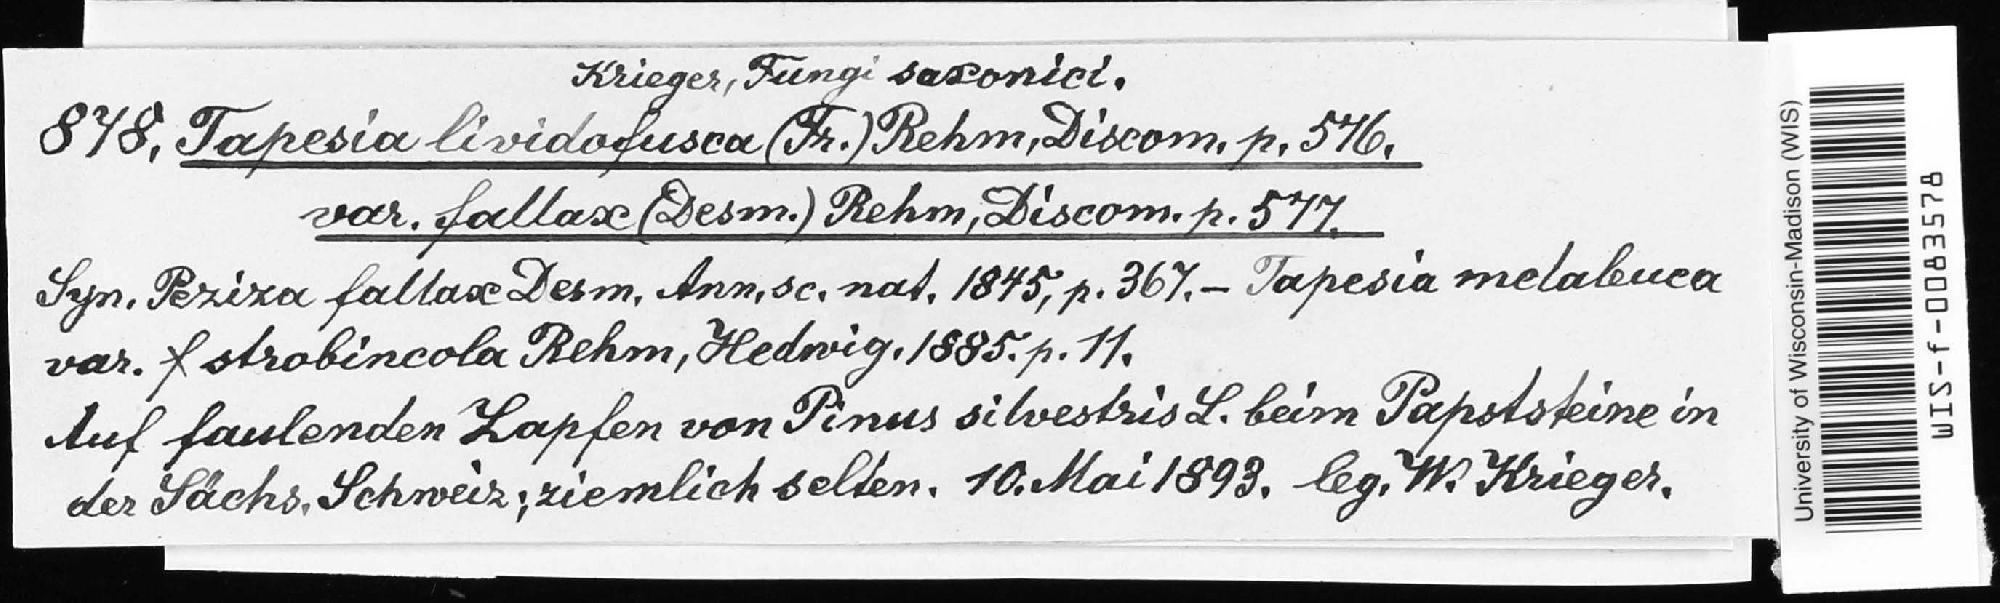 Krieger, Fungi saxonici.
878, Tapesia lividofusca (Fr.) Rehm, Discom. p. 576.
var. fallax (Desm.) Rehm, Discom. p. 577.
Syn. Peziza fallax Desm. Ann. sc. nat. 1845, p. 367. – Tapesia melaleuca
var. f strobincola Rehm, Hedwig. 1885. p. 11.
Auf faulenden Zapfen von Pinus silvestris L. beim Papststeine in
der Sächs. Schweiz; ziemlich selten. 10. Mai 1893. leg. W. Krieger.
University of Wisconsin-Madison (WIS)
WIS-f-0083578